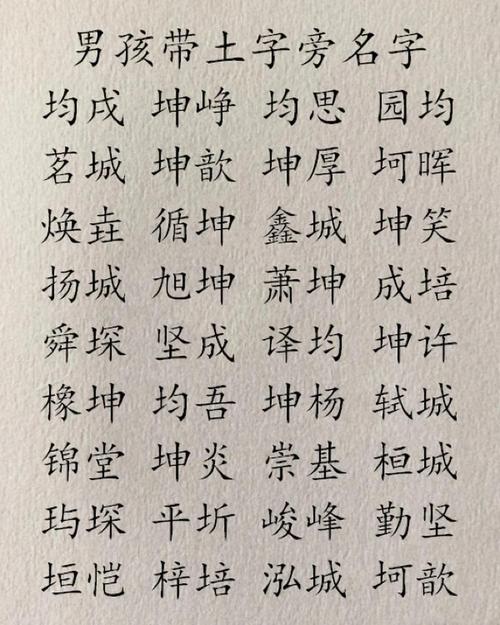 男孩带土字旁名字
均戌 坤峥 均思 园均
茗城 坤歆 坤厚 坷晖
焕垚 循坤 鑫城 坤笑
扬城 旭坤 萧坤 成培
舜堔 坚成 译均 坤许
橡坤 均吾 坤杨 轼城
锦堂 坤炎 崇基 桓城
玙堔 平圻 峻峰 勤坚
垣恺 梓培 泓城 坷歆